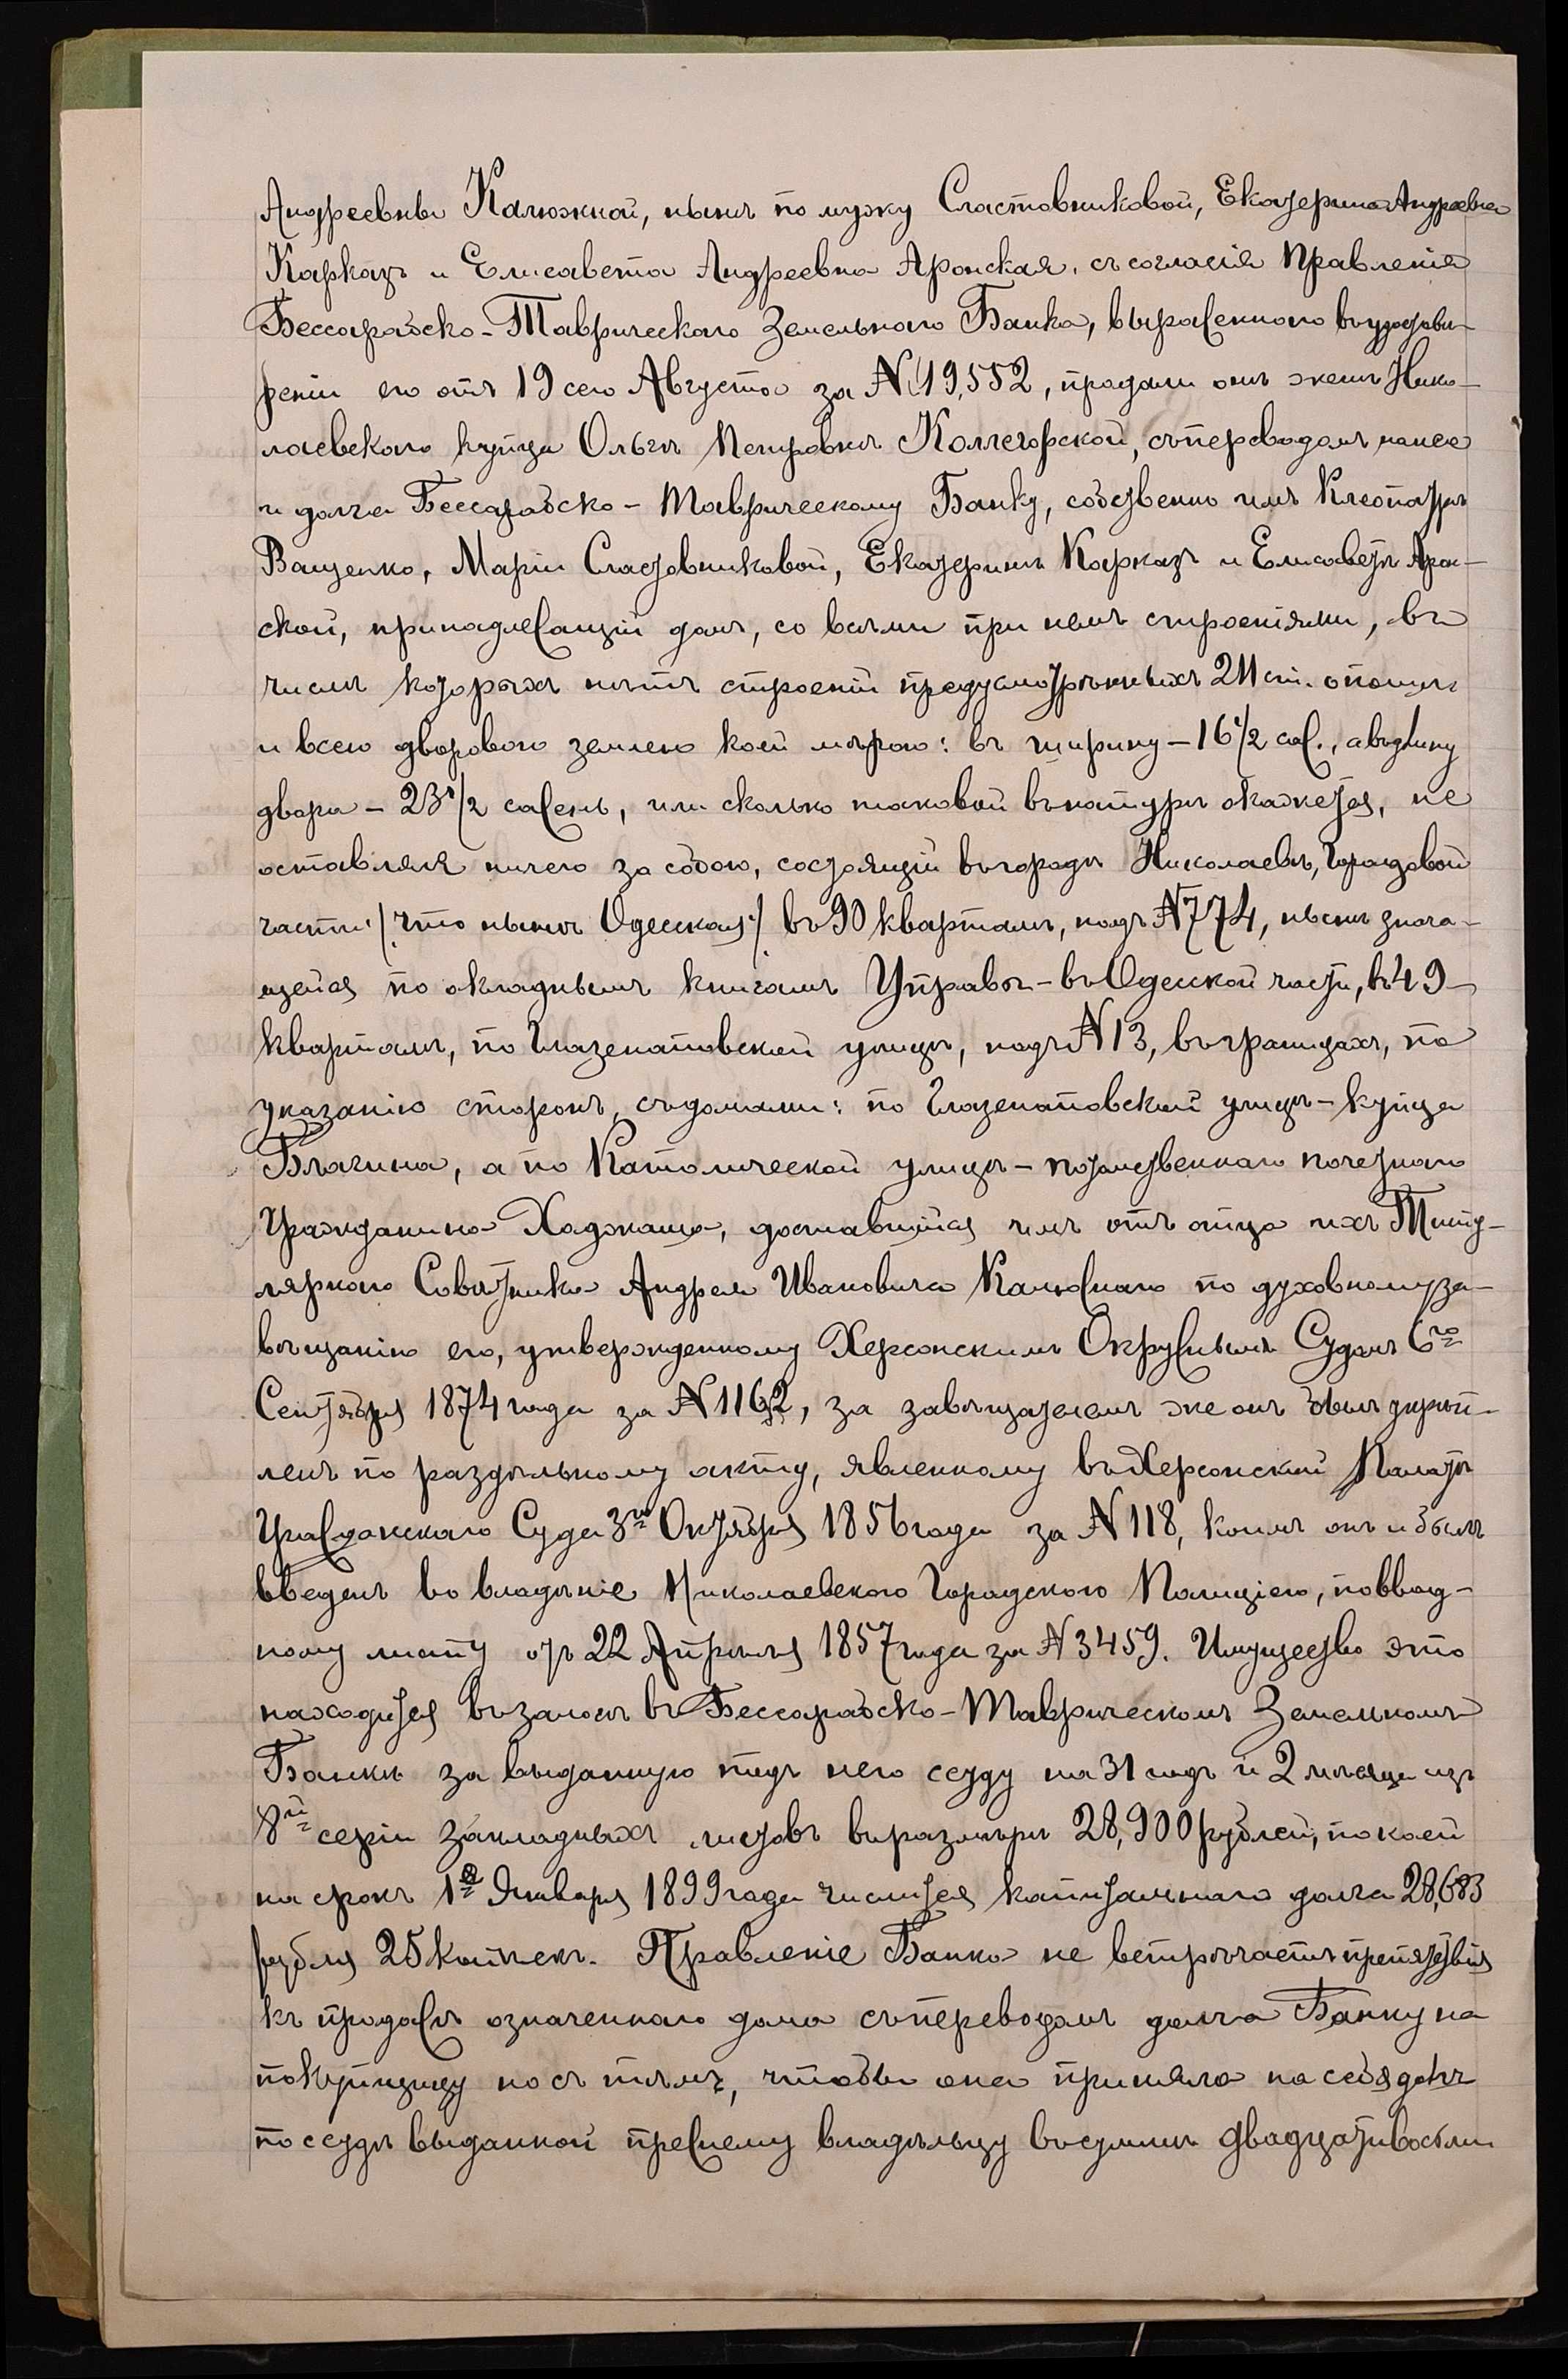 Андреевны Калюжной, нынѣ по мужу Сластовниковой, Екатерина Андреевна
Карказъ и Елисавета Андреевна Аронская, съ согласія Правленія
Бессарабско-Таврическаго Земельнаго Банка, выраженнаго въ удостовѣ-
реніи его отъ 19 сего Августа за № 19,552, продали онѣ женѣ Нико-
лаевскаго купца Ольгѣ Петровнѣ Коллегорской, съ переводомъ на нее
и долга Бессарабско-Таврическому Банку, собственно имъ Клеопатрѣ
Ващенко, Маріи Сластовниковой, Екатеринѣ Карказъ и Елисаветѣ Арон-
ской, принадлежащій домъ, со всѣми при немъ строеніями, въ
числѣ которыхъ нѣтъ строеній предусмотрѣнныхъ 211 ст. о пошл.
и всею дворовою землею коей мѣрою: въ ширину – 16 1/2 саж., а въ длину
двора – 23 1/2 сажень, или сколько таковой въ натурѣ окажется, не
оставляя ничего за собою, состоящій въ городѣ Николаевѣ, Городовой
части /: что нынѣ Одесская :/ въ 90 кварталѣ, подъ № 774, нынѣ знача-
щейся по окладнымъ книгамъ Управы – въ Одесской части, въ 49
кварталѣ, по Глазенаповской улицѣ, подъ № 13, въ границахъ, по
указанію сторонъ, съ домами: по Глазенаповской улицѣ – купца
Благина, а по Католической улицѣ – потомственнаго почетнаго
Гражданина Хаджаца, доставшійся имъ отъ отца ихъ Титу-
лярнаго Совѣтника Андрея Ивановича Калюжнаго по духовному за-
вѣщанію его, утвержденному Херсонскимъ Окружнымъ Судомъ 6го
Сентября 1874 года за № 1162, за завѣщателемъ же онъ былъ укрѣп-
ленъ по раздѣльному акту, явленному въ Херсонской Палатѣ
Гражданскаго Суда 3го Октября 1856 года за № 118, коимъ онъ и былъ
введенъ во владѣніе Николаевскою Городскою Полиціею, по ввод-
ному листу отъ 22 Апрѣля 1857 года за № 3459. Имущество это
находится въ залогѣ въ Бессарабско-Таврическомъ Земельномъ
Банкѣ за выданную подъ него ссуду на 31 годъ и 2 мѣсяца изъ
8й серіи закладныхъ листовъ въ размѣрѣ 28,900 рублей, по коей
на срокъ 1е Января 1899 года числится капитальнаго долга 28,683
рубля 25 копѣекъ. Правленіе Банка не встрѣчаетъ препятствія
къ продажѣ означеннаго дома съ переводомъ долга Банку на
покупщицу но съ тѣмъ, чтобы она приняла на себя долгъ
по ссудѣ выданной прежнему владѣльцу въ суммѣ двадцати восьми